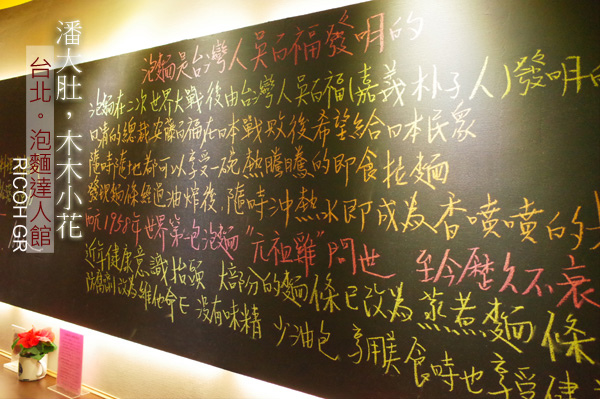 潘大肚,木木小花
台北。泡麵達人館
RICOH GR
泡麵是台灣人吳百福發明的
泡麵在二次世界大戰後由台灣人吳百福(嘉義朴子人)發明的
日清的總裁安藤百福在日本戰敗後希望給日本民眾
隨時隨地都可以享受一碗熱騰騰的即食拉麵
發現麵條經過油炸後,隨時沖熱水即成為香噴噴的
1958年世界第一泡泡麵"元祖雞"問世 至今歷久不衰
近年健康意識抬頭 大部分的麵條已改為蒸煮麵條
防腐劑改為維他命E 沒有味精 少油包 享用美食時也享受健